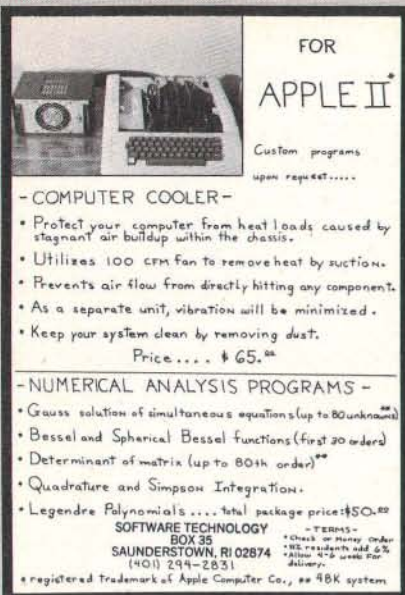 FOR
APPLE II*
Custom programs
upon request.....
- COMPUTER COOLER -
• Protect your computer from heat loads caused by
stagnant air buildup within the chassis.
• Utilizes 100 CFM fan to remove heat by suction.
• Prevents air flow from directly hitting any component.
• As a separate unit, vibration will be minimized.
• Keep your system clean by removing dust.
Price.... $65.00
- NUMERICAL ANALYSIS PROGRAMS -
• Gauss solution of simultaneous equations (up to 80 unknowns)**
• Bessel and Spherical Bessel functions (first 30 orders)
• Determinant of matrix (up to 80th order)**
• Quadrature and Simpson Integration.
• Legendre Polynomials.... total package price: $50.00
SOFTWARE TECHNOLOGY
BOX 35
SAUNDERSTOWN, RI 02874
(401) 294-2831
- TERMS -
• Check or Money Order
• RI residents add 6%
• Allow 4-6 weeks for
delivery.
* registered trademark of Apple Computer Co., ** 48K system